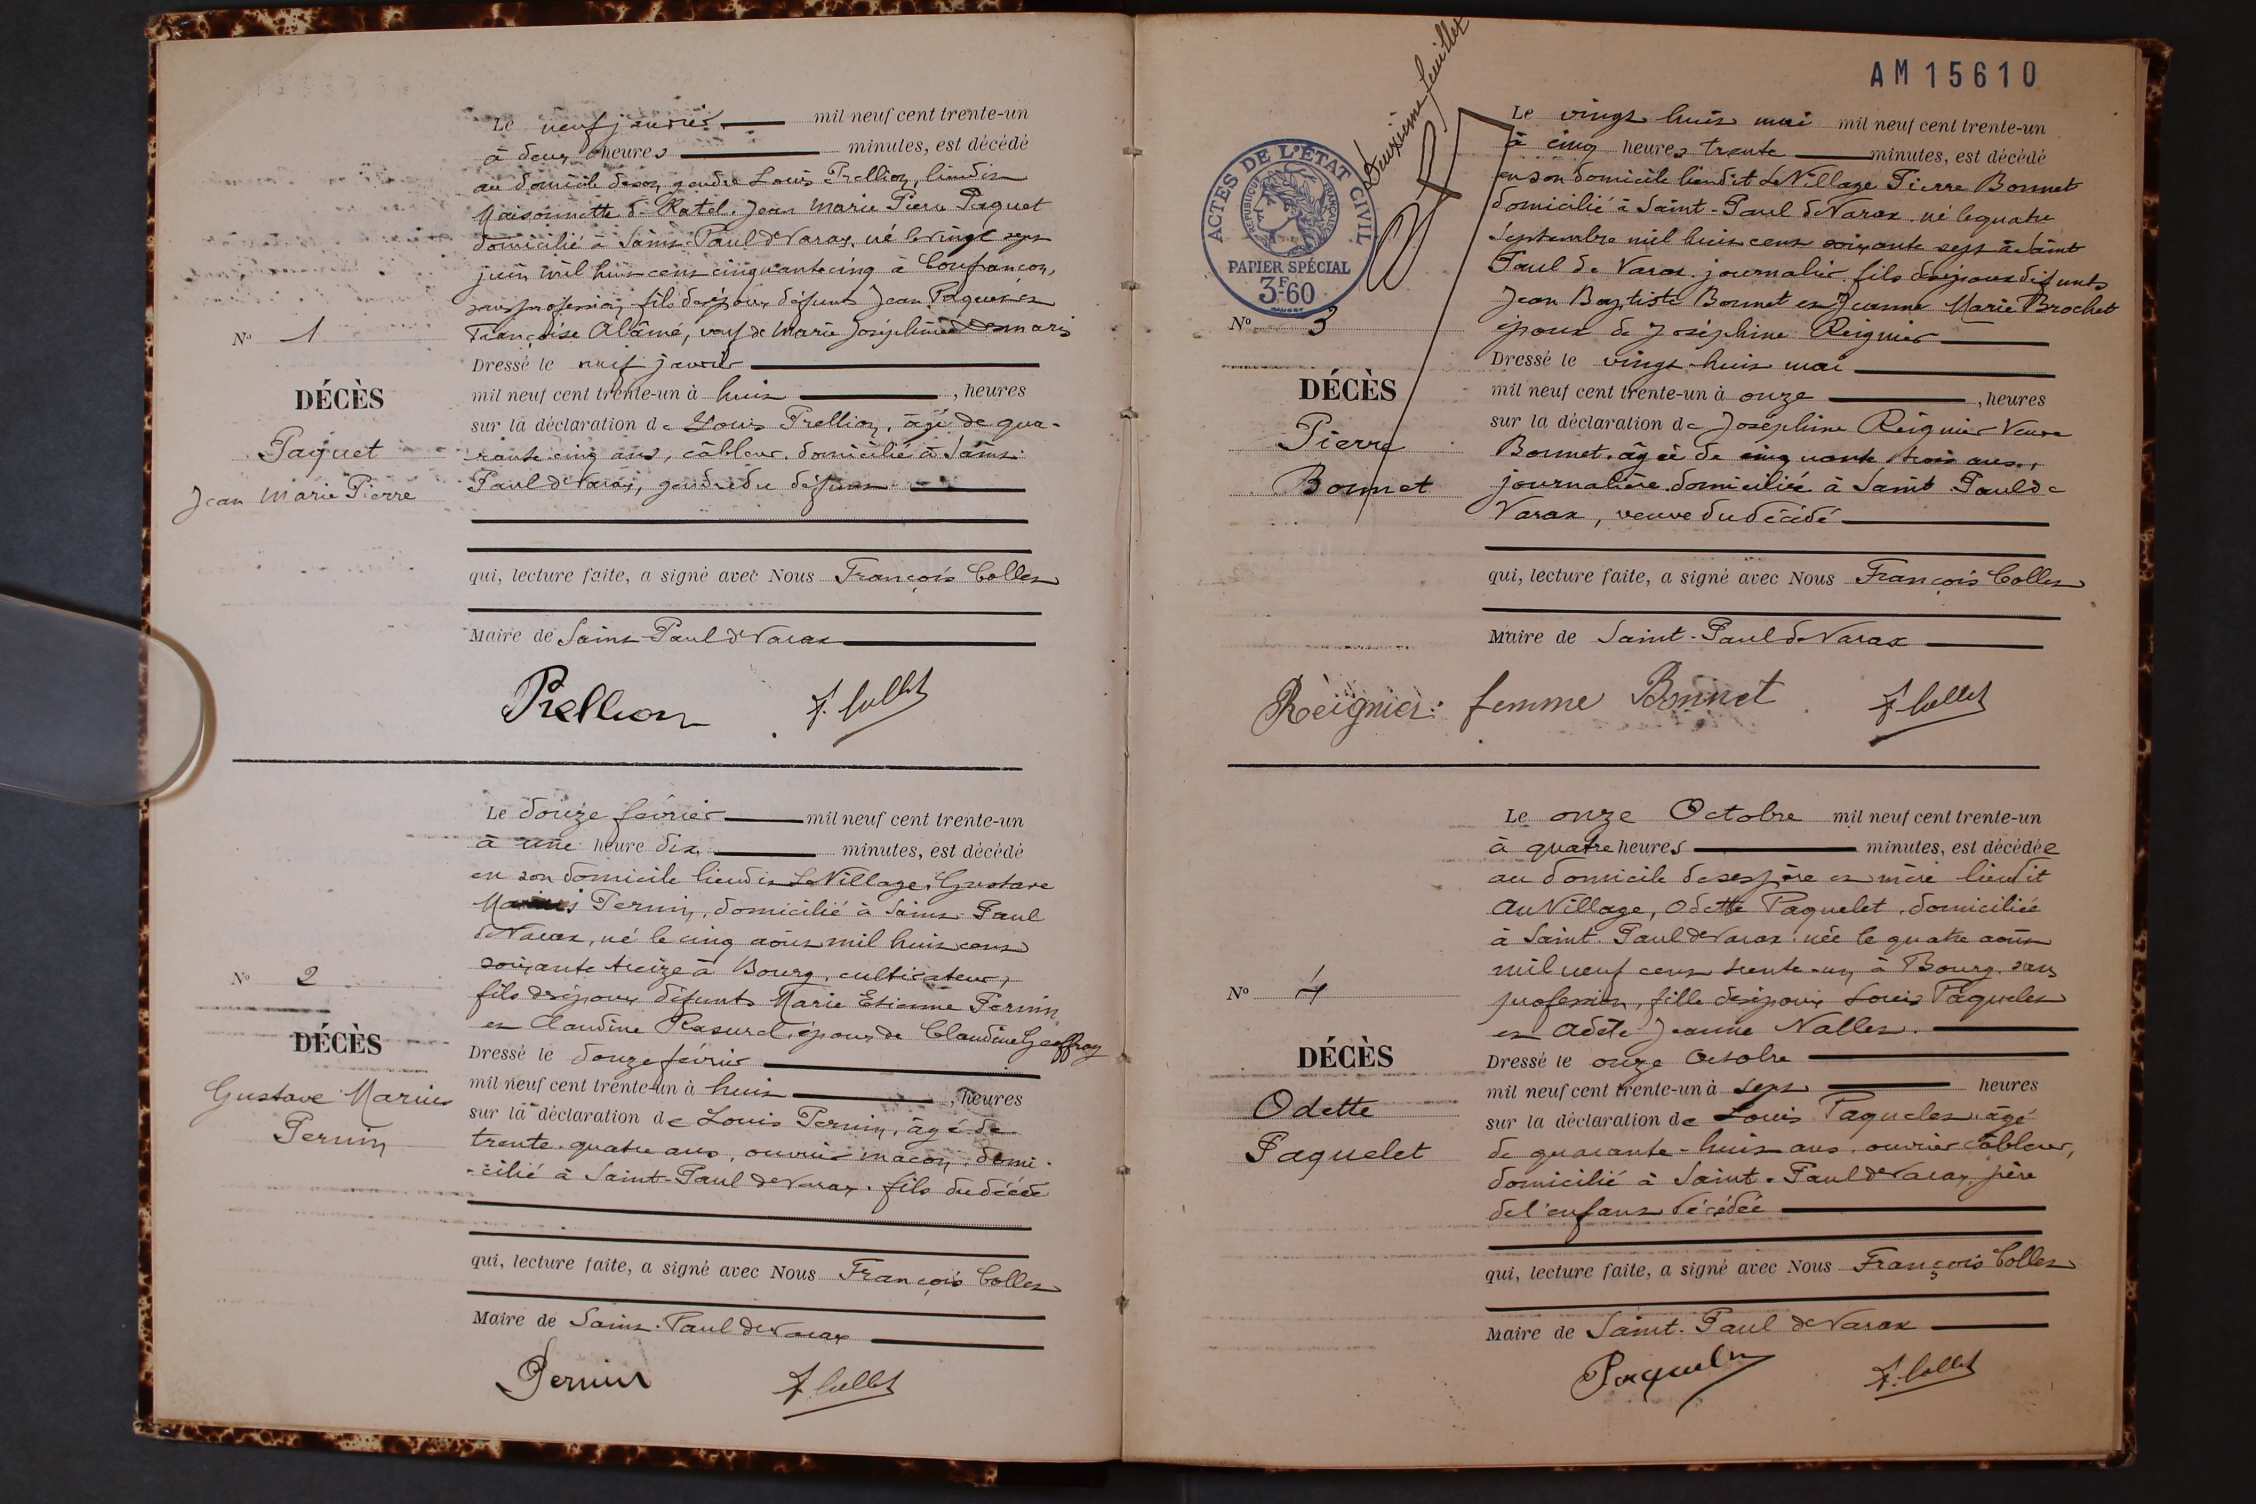 Le neuf janvier mil neuf cent trente-un
à deux heures minutes, est décédé
au domicile de son gendre Louis Prellion, lieudit
Maisonnette de Ratel. Jean Marie Pierre Paquet
domicilié à Saint-Paul de Varax, né le vingt sept
juin mil huit cent cinquante cinq à Confrançon,
sans profession, fils des époux défunts Jean Paquet et
Françoise Alâmé, veuf de Marie Joséphine Desmaris
N° 1
DÉCÈS
Paquet
Jean Marie Pierre
Dressé le neuf janvier
mil neuf cent trente-un à huit , heures
sur la déclaration de Louis Prellion, âgé de qua-
rante cinq ans, câbleur, domicilié à Saint
Paul de Varax, gendre du défunt
qui, lecture faite, a signé avec Nous François Collet
Maire de Saint-Paul de Varax
Prellion F. Collet
Le douze février mil neuf cent trente-un
à une heure dix minutes, est décédé
en son domicile lieudit Le Village, Gustave
Marius Pernin, domicilié à Saint Paul
de Varax, né le cinq août mil huit cent
soixante treize à Bourg, cultivateur,
fils des époux défunts Marie Etienne Pernin
et Claudine Rasurel, époux de Claudine Geoffray
N° 2
DÉCÈS
Gustave Marius
Pernin
Dressé le douze février
mil neuf cent trente-un à huit , heures
sur la déclaration de Louis Pernin, âgé de
trente-quatre ans, ouvrier maçon, domi-
-cilié à Saint-Paul de Varax. fils du décédé
qui, lecture faite, a signé avec Nous François Collet
Maire de Saint-Paul de Varax
Pernin F. Collet
AM 15610
Deuxième feuillet
ACTES DE L'ÉTAT CIVIL
RÉPUBLIQUE FRANÇAISE
PAPIER SPÉCIAL
3F60
Le vingt huit mai mil neuf cent trente-un
à cinq heures trente minutes, est décédé
en son domicile lieudit Le Village Pierre Bonnet
domicilié à Saint-Paul de Varax né le quatre
Septembre mil huit cent soixante sept à Saint
Paul de Varax journalier fils des époux défunts
Jean Baptiste Bonnet et Jeanne Marie Brochet
époux de Joséphine Reignier
N° 3
DÉCÈS
Pierre
Bonnet
Dressé le vingt-huit mai
mil neuf cent trente-un à onze , heures
sur la déclaration de Joséphine Reignier Veuve
Bonnet, âgée de cinquante trois ans,
journalière domiciliée à Saint Paul de
Varax, veuve du décédé
qui, lecture faite, a signé avec Nous François Collet
Maire de Saint-Paul de Varax
Reignier femme Bonnet F. Collet
Le onze Octobre mil neuf cent trente-un
à quatre heures minutes, est décédée
au domicile de ses père et mère lieudit
Au Village, Odette Paquelet, domiciliée
à Saint-Paul de Varax née le quatre août
mil neuf cent trente-un à Bourg, sans
profession, fille des époux Louis Paquelet
et Adèle Jeanne Nallet.
N° 4
DÉCÈS
Odette
Paquelet
Dressé le onze Octobre
mil neuf cent trente-un à sept heures
sur la déclaration de Louis Paquelet âgé
de quarante-huit ans, ouvrier câbleur,
domicilié à Saint-Paul de Varax, père
de l'enfant décédée
qui, lecture faite, a signé avec Nous François Collet
Maire de Saint-Paul de Varax
Paquelet F. Collet